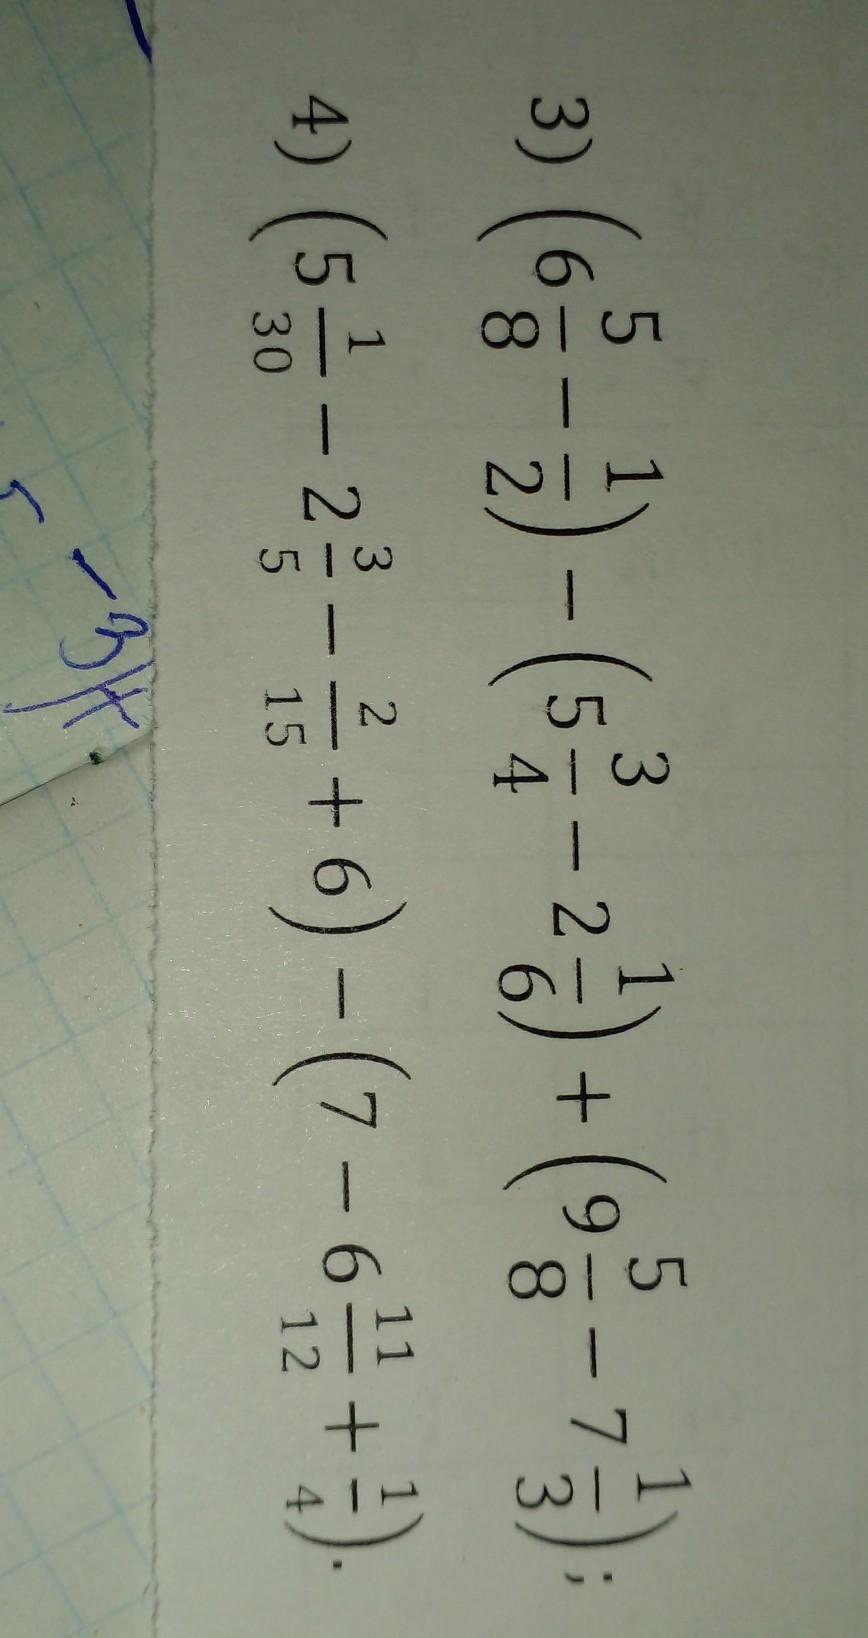 3) (6 5/8 − 1/2) − (5 3/4 − 2 1/6) + (9 5/8 − 7 1/3);
4) (5 1/30 − 2 3/5 − 2/15 + 6) − (7 − 6 11/12 + 1/4).